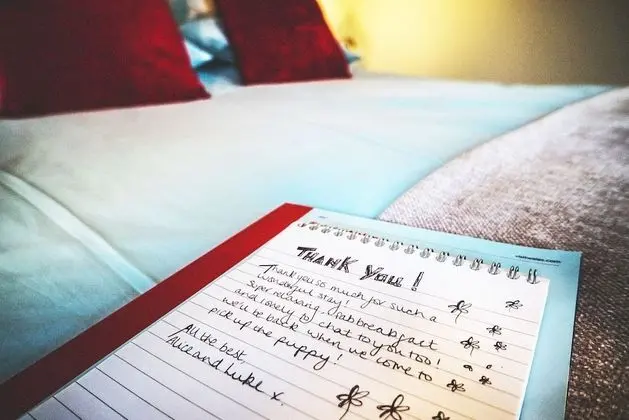 THANK YOU!
Thank you so much for such a
wonderful stay!
Super relaxing, fab breakfast
and lovely to chat to you too!
we'll be back when we come to
pick up the puppy!
All the best
Alice and Luke x.